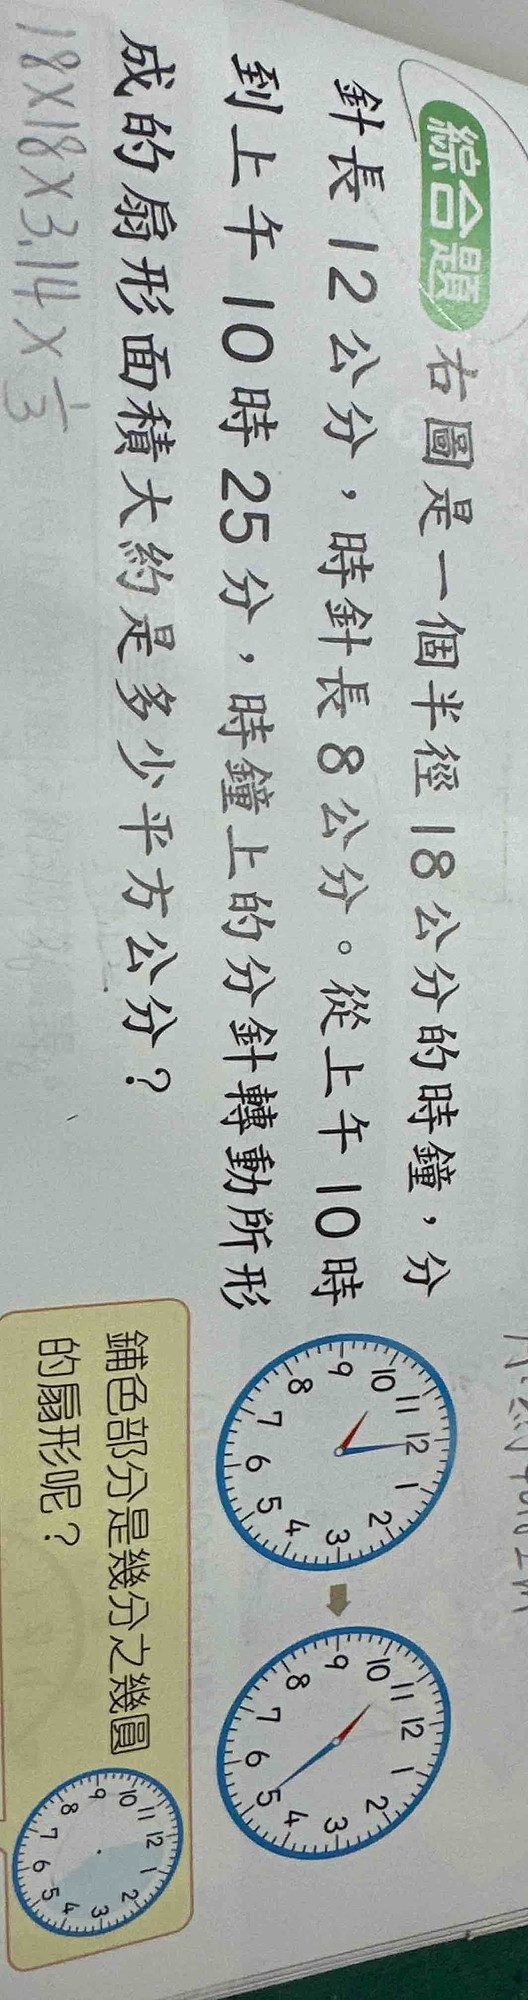 綜合題
右圖是一個半徑18公分的時鐘，分
針長12公分，時針長8公分。從上午10時
到上午10時25分，時鐘上的分針轉動所形
成的扇形面積大約是多少平方公分？
18×18×3.14×1/3
12 1 2 3 4 5 6 7 8 9 10 11
12 1 2 3 4 5 6 7 8 9 10 11
鋪色部分是幾分之幾圓
的扇形呢？
12 1 2 3 4 5 6 7 8 9 10 11